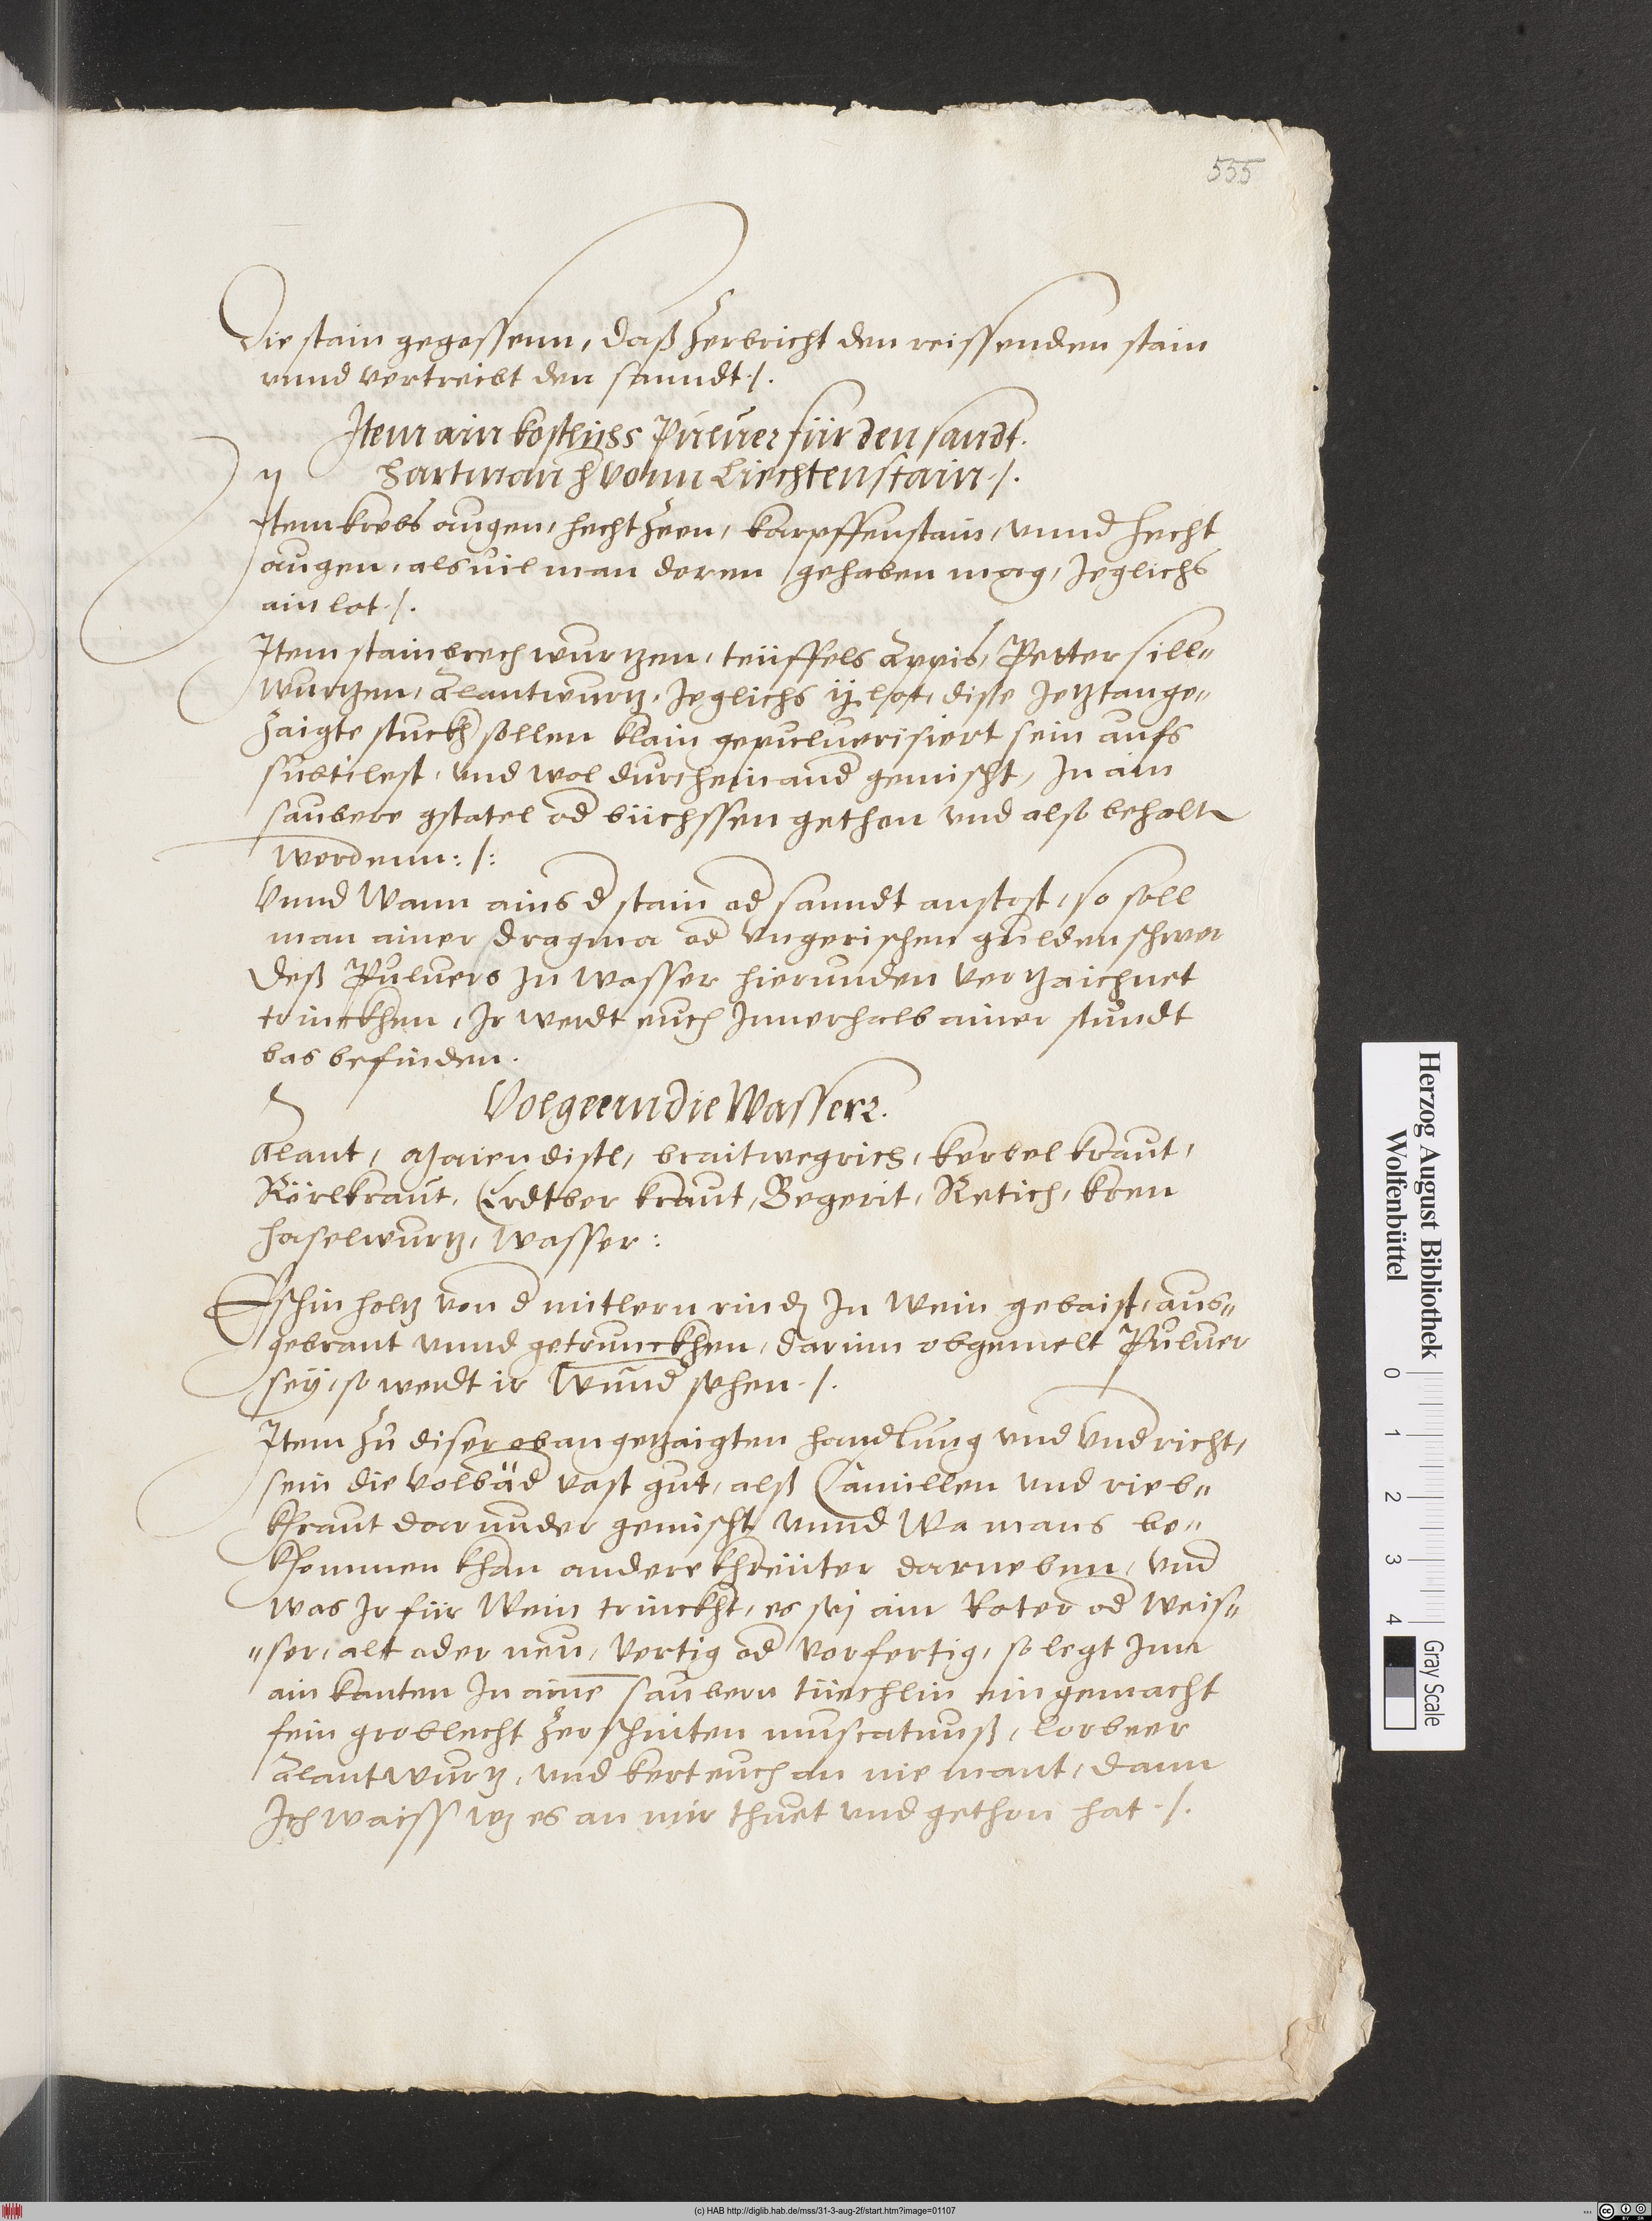 555
Die stain gegessenn, daß zerbricht den reissenden stain
vnnd vertreibt den sanndt ./.
Item ain kostlichs Puluer für den sandt.
Hartman H vonn Liechtenstain ./.
Item krebs augen, hecht zeen, karpffenstain, vnnd hecht
augen, alsuil man deren gehaben mag, Jeglichs
ain lot ./.
Item stainbrech wurtzen, teüffels appis, Petter sill„
wurtzen, Alantwurtz, Jeglichs ij lot, disse Jetztange„
zaigte stuckh sollen klain gepuluerisiert sein aufs
subtilest, vnd wol durcheinand gemischt, In ain
saubere gstatel od büchssen gethon vnd also behaltn
werdenn :/:
Vnnd Wann ains d stain od sanndt anstost, so soll
man ainer dragma od vngerischen gulden schwer
deß Puluers In wasser hierunden vertzaichnet
trinckhen, Ir werdt euch Innerhalb ainer stundt
bas befinden.
Volgeenn die Wasserr.
Alant, Mariendistl, braitwegrich, kerbel kraut,
Körlkraut, Erdtber kraut, Begerit, Retich, kren
haselwurtz, wasser :
Eschin holtz von d mitlern rind In wein gebaist, aus„
gebrant vnnd getrunckhen, darinn obgemelt Puluer
seÿ, so werdt ir Wund sehen ./.
Item zu diser obangetzaigten handlung vnd vndricht,
sein die volbäd vast gut, alß Camillen vnd rieb„
khraut darunder gemischt vnnd Wa mans be„
khommen khan andere khreüter darneben, vnd
was Ir für Wein trinckht, es sej ain Roter od weis„
„ser, alt oder neu, vertig od vorfertig, so legt Inn
ain kanten In aine saubern tüechlin ein gemacht
fein groblecht zerschniten muscatnuß, lorbeer
Alantwurtz, vnd kert euch an niemant, dann
Ich waiss wz es an mir thuet vnd gethon hat ./.
Herzog August Bibliothek
Wolfenbüttel
0 1 2 3 4
Gray Scale
(c) HAB http://diglib.hab.de/mss/31-3-aug-2f/start.htm?image=01107